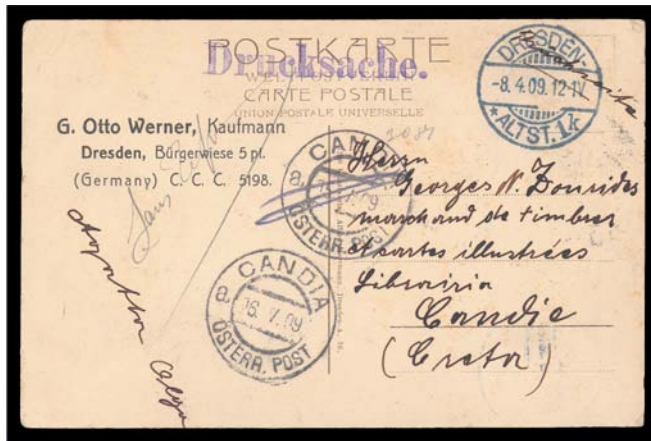 POSTKARTE
Drucksache.
WELTPOSTVEREIN
CARTE POSTALE
UNION POSTALE UNIVERSELLE
DRESDEN-
-8.4.09.12-1V
*ALTST.1k
G. Otto Werner, Kaufmann
Dresden, Bürgerwiese 5 pt.
(Germany) C. C. C. 5198.
CANDIA
a
ÖSTERR. POST
CANDIA
a
16. V. 09
ÖSTERR. POST
Herrn
Georges N.
marchand de timbres
et cartes illustrées
Librairia
Candie
(Creta)
Olga